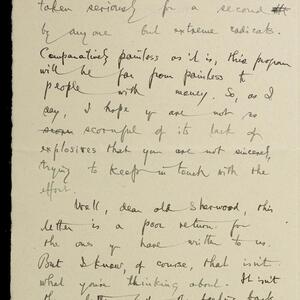 taken seriously for a second
by anyone but extreme radicals.
Comparatively painless as it is, this program
will be far from painless to
people with money. So, as I
day, I hope yr are not so
scornful of its lack of
explosives that you are not sincerely
trying to keep in touch with the
effort.
Well, dear old Sherwood, this
letter is a poor return for
the ones yr have written to us.
But I know, of course, that isn't
what you're thinking about. It isn't
the letter
back